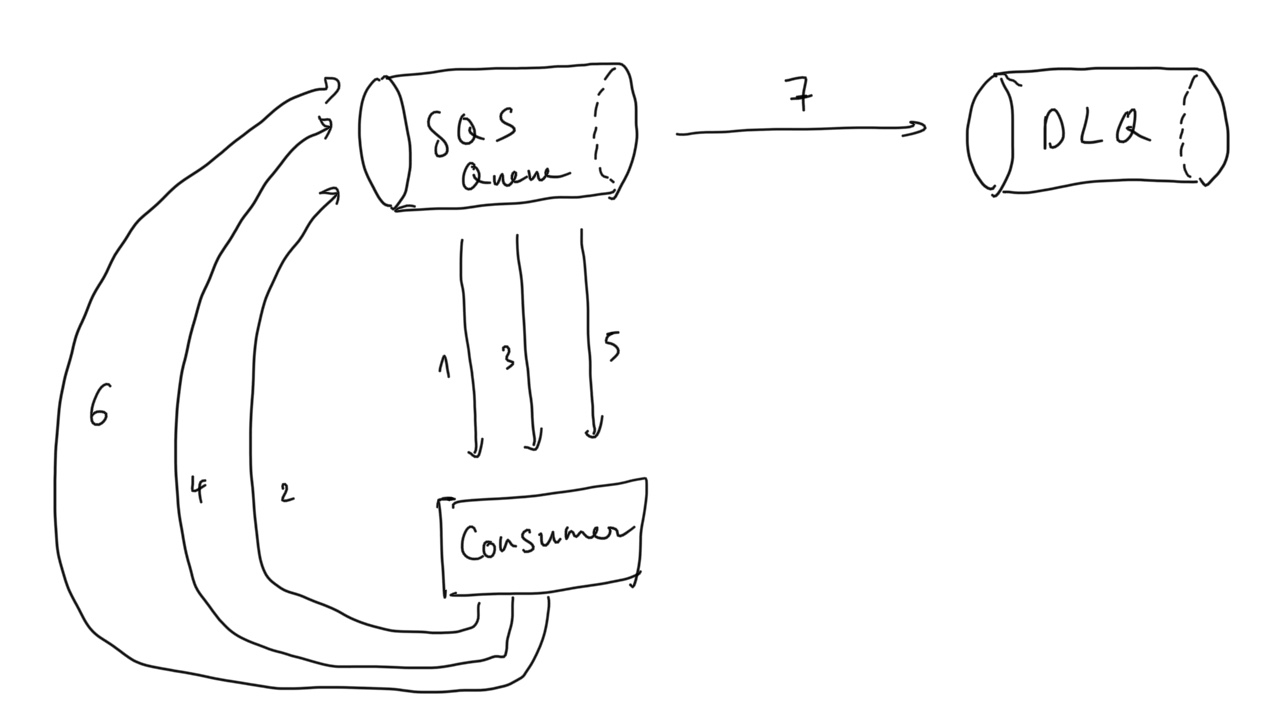 SQS
Queue
7
DLQ
1
3
5
6
4
2
Consumer